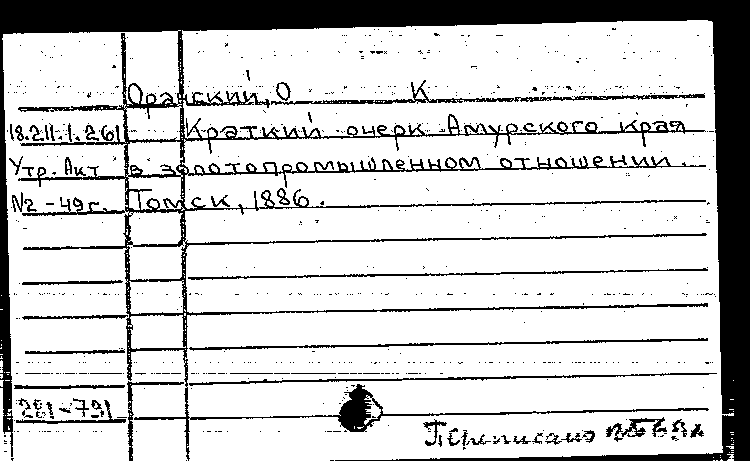 Оранский, О К
18.211.1.261 Краткий очерк Амурского края
Утр. Акт в золотопромышленном отношении.
№2-49г. Томск, 1886.
281-791
Переписано